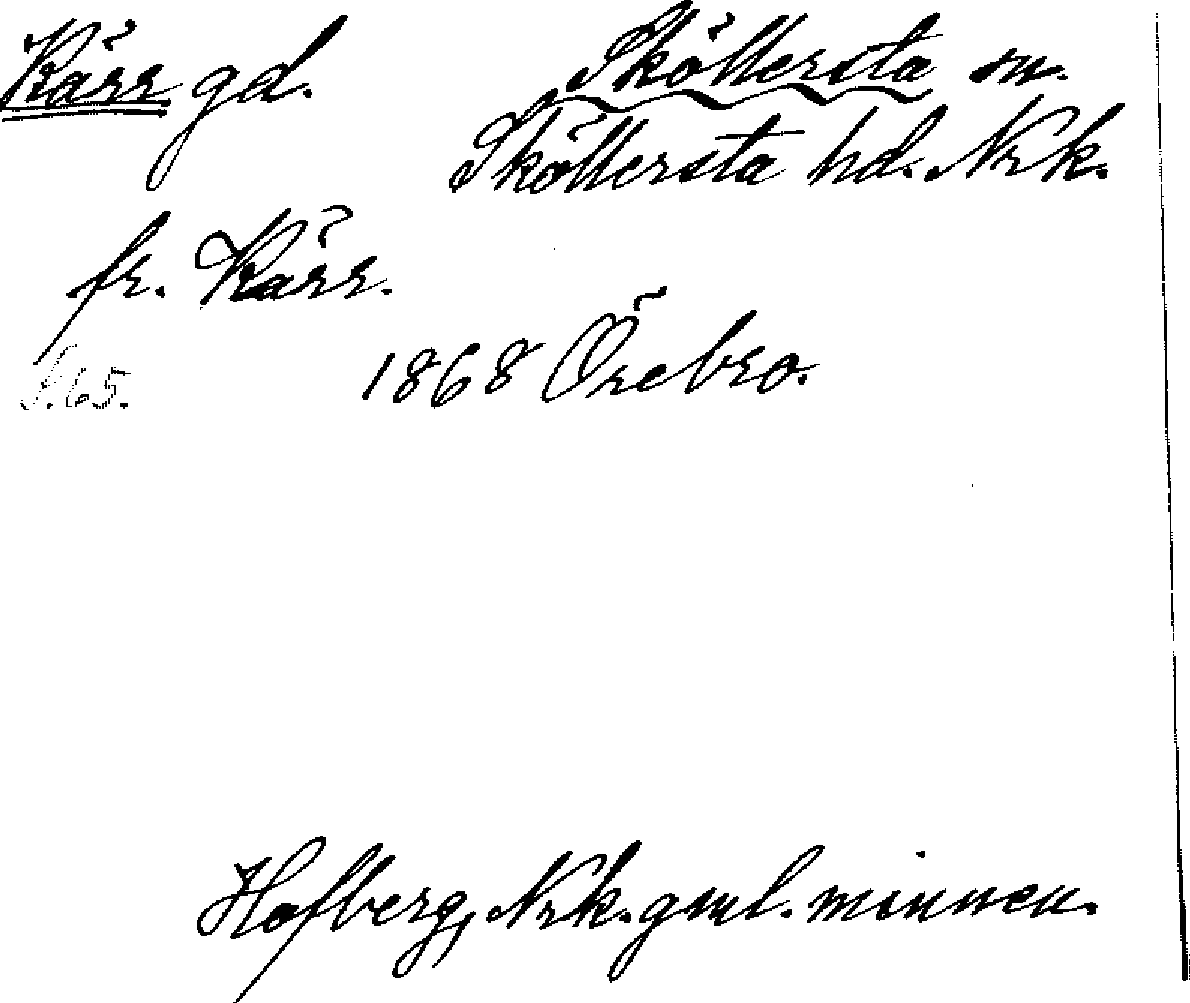 Kärr gd. Sköllersta sn.
Sköllersta hd. Nrk.
fr. Kärr.
S. 65. 1868 Örebro.
Hofberg, Nrk. gml. minnen.